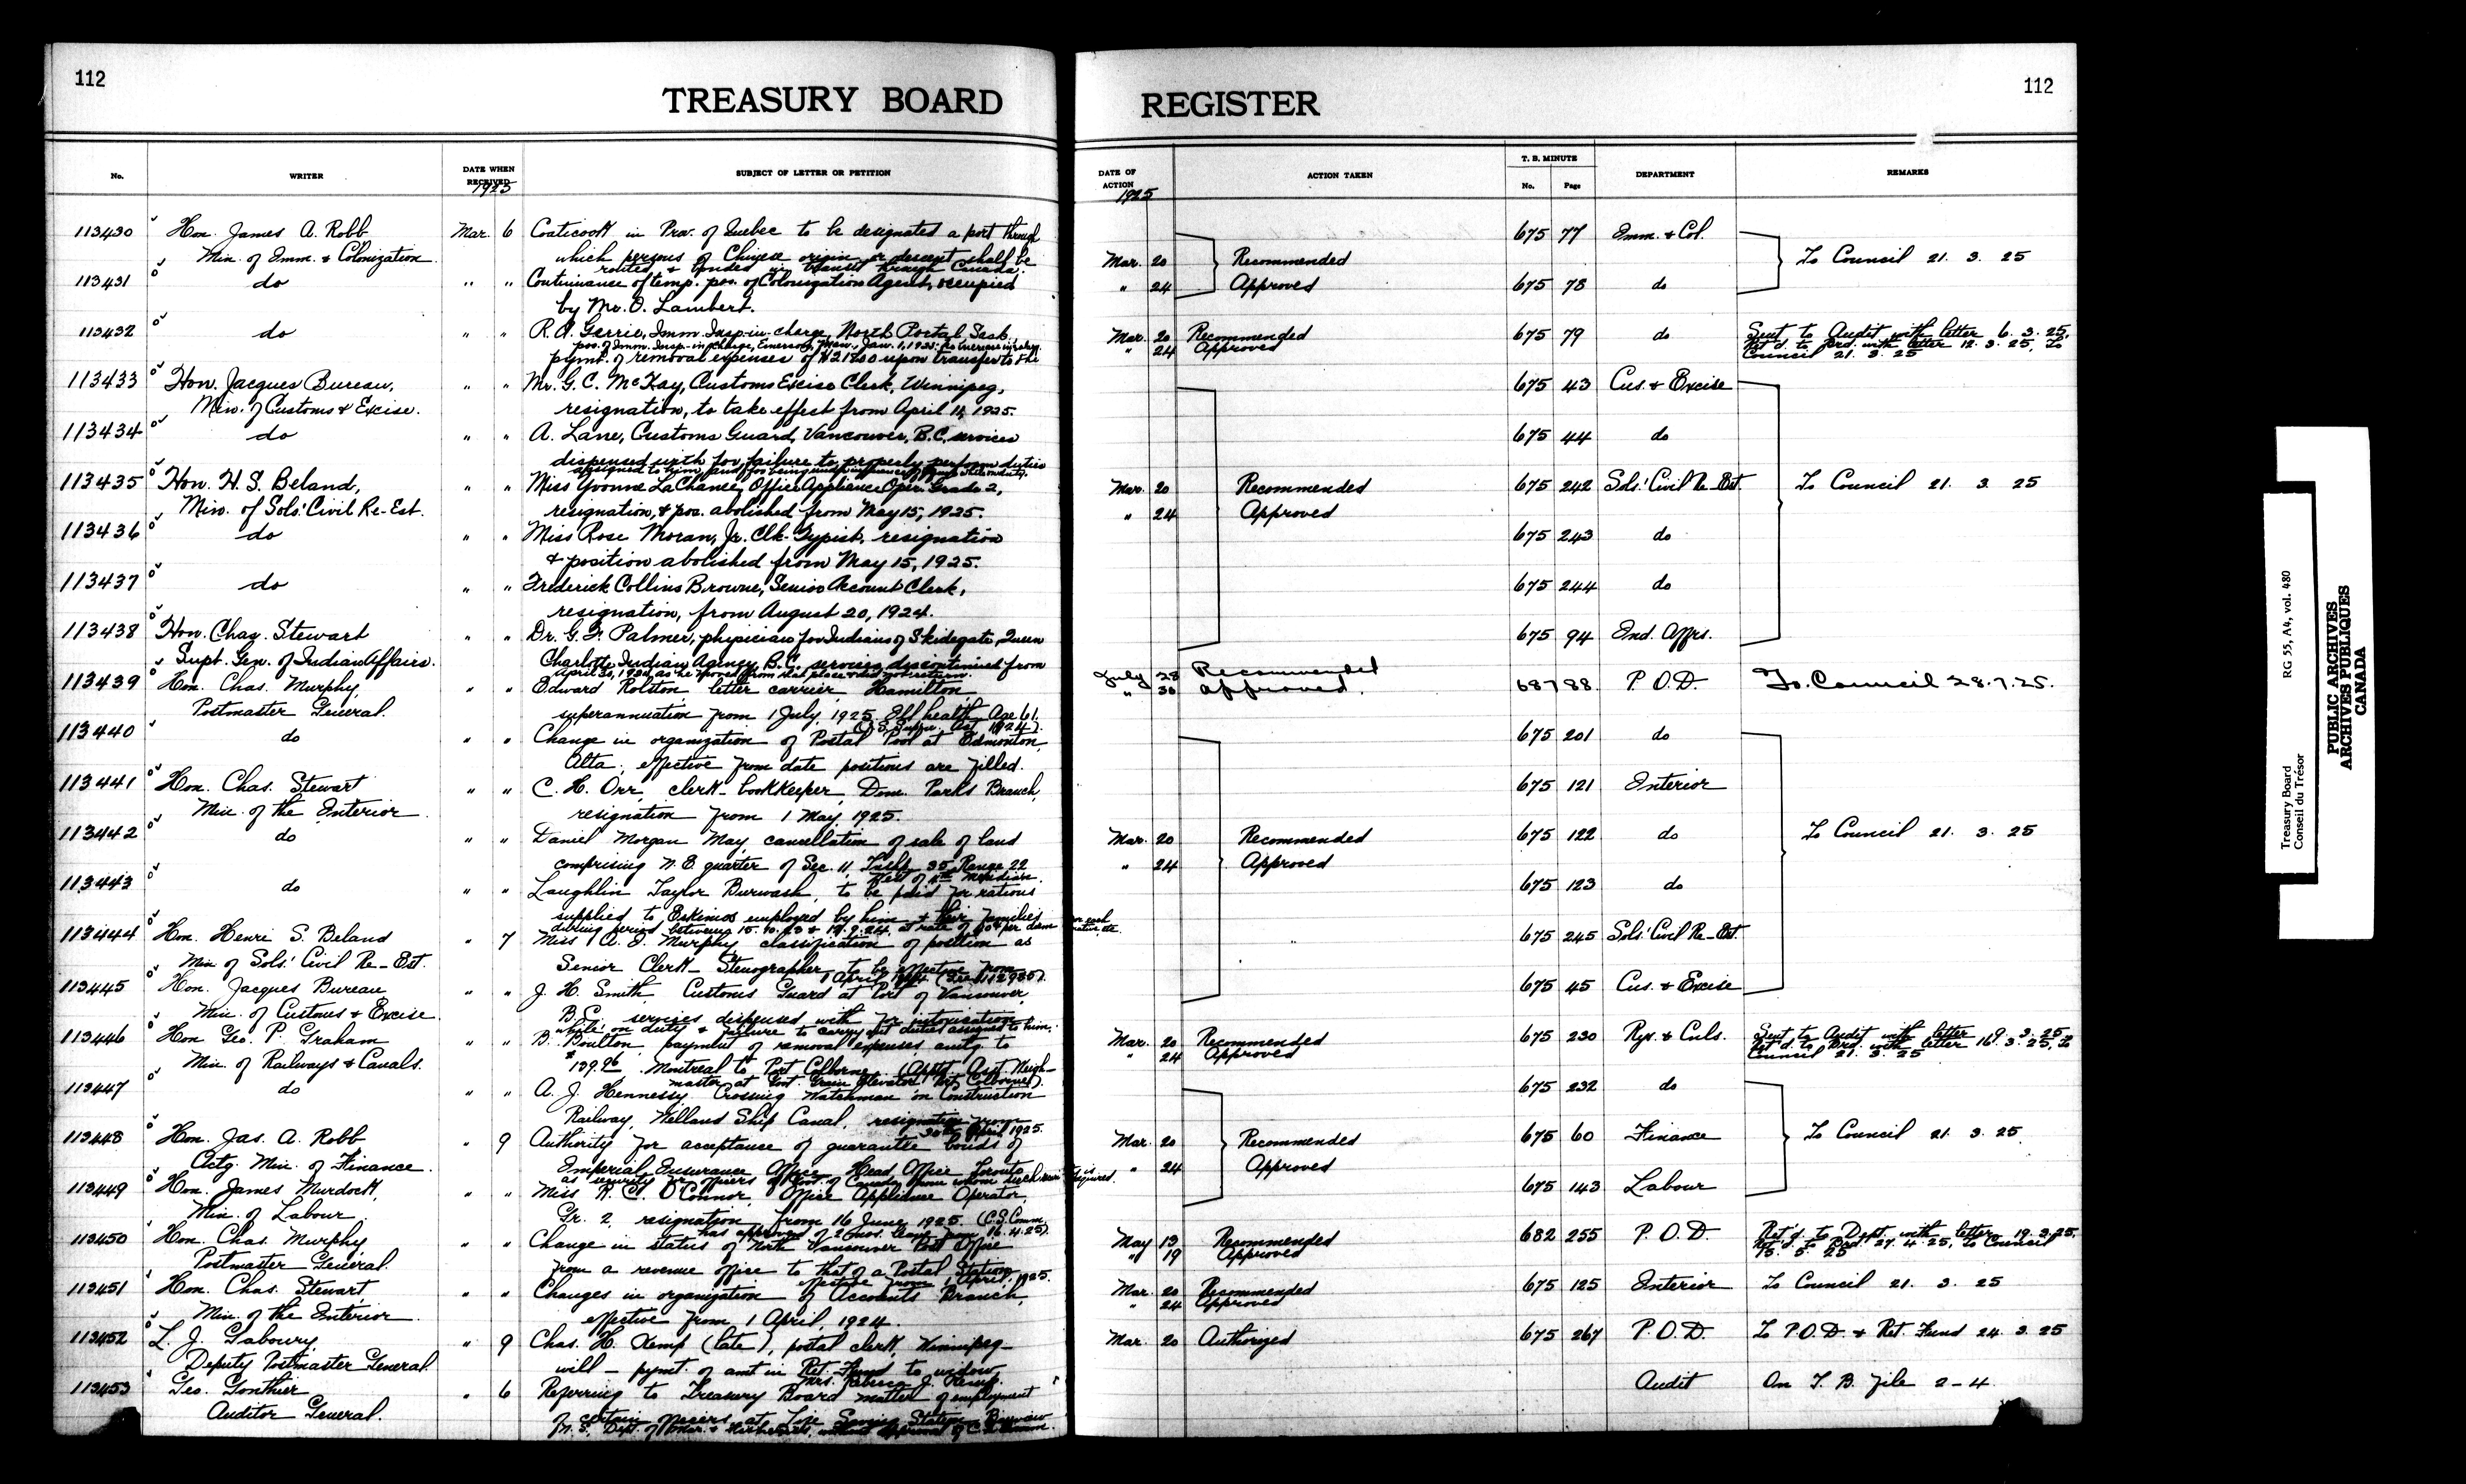 112
TREASURY BOARD
No. WRITER DATE WHEN RECEIVED SUBJECT OF LETTER OR PETITION
1925
113430 Hon. James A. Robb Mar. 6 Coaticook in Prov. of Quebec to be designated a port through
Min. of Imm. & Colonization. which persons of Chinese origin or descent shall be
routed & bonded in transit through Canada.
113431 do " " Continuance of temp. pos. of Colonization Agent, occupied
by Mr. O. Lambert.
113432 do " " R. A. Gerrie, Imm. Insp-in-charge, North Portal, Sask.
pos. of Imm. Insp-in-charge, Emerson, Man., Jan. 1, 1925. no increase in salary.
pymt. of removal expenses of upon transfer to the
113433 Hon. Jacques Bureau, " " Mr. G. C. McKay, Customs Excise Clerk, Winnipeg,
Min. of Customs & Excise. resignation, to take effect from April 11, 1925.
113434 do " " A. Lane, Customs Guard, Vancouver, B.C. services
dispensed with for failure to properly perform duties
assigned to him, and for being under influence of while on duty.
113435 Hon. H. S. Beland, " " Miss Yvonne LaChance, Office Appliance Oper. Grade 2,
Min. of Sols.' Civil Re-Est. resignation, & pos. abolished from May 15, 1925.
113436 do " " Miss Rose Moran, Jr. Clk-Typist, resignation
& position abolished from May 15, 1925.
113437 do " " Frederick Collins Browne, Senior Account Clerk,
resignation, from August 20, 1924.
113438 Hon. Chas. Stewart " " Dr. G. F. Palmer, physician for Indians of Skidegate, Queen
Supt. Gen. of Indian Affairs. Charlotte Indian Agency, B.C. services discontinued from
April 30, 1924, as he moved from that place & did not return.
113439 Hon. Chas. Murphy, " " Edward Rolston letter carrier, Hamilton,
Postmaster General. superannuation from 1 July, 1925. Ill health. Age 61.
(C.S. Super. Act 1924).
113440 do " " Change in organization of Postal Pool at Edmonton,
Alta., effective from date positions are filled.
113441 Hon. Chas. Stewart " " C. H. Orr, clerk-bookkeeper, Dom. Parks Branch,
Min. of the Interior resignation from 1 May, 1925.
113442 do " " Daniel Morgan May, cancellation of sale of land
comprising N. E. quarter of Sec. 11, Twsp. 35, Range 22
West of Meridian.
113443 do " " Laughlin Taylor Burwash, to be paid for rations
supplied to Eskimos employed by him & their families
during period between 15. 10. 23 & 19. 9. 24, at rate of per diem for each
113444 Hon. Henri S. Beland " 7 Miss A. I. Murphy classification of position as
Min. of Sols.' Civil Re-Est. Senior Clerk-Stenographer, to be effective from
1 April, 1924.
113445 Hon. Jacques Bureau " " J. H. Smith, Customs Guard at Port of Vancouver,
Min. of Customs & Excise. B.C. services dispensed with for intoxication
while on duty & failure to carry out duties assigned to him.
113446 Hon Geo. P. Graham " " B. Boulton, payment of removal expenses amtg. to
Min. of Railways & Canals. $139.96 Montreal to Port Colborne. (Apptd. Asst. Weigh-
master at Govt. Grain Elevator Port Colborne).
113447 do " " A. J. Hennessy Crossing Watchman on Construction
Railway, Welland Ship Canal, resignation from
30th April, 1925.
113448 Hon. Jas. A. Robb " 9 Authority for acceptance of guarantee bonds of
Actg. Min. of Finance. Imperial Insurance Office, Head Office Toronto
as security for officers of Govt. of Canada from whom such security is required.
113449 Hon. James Murdock, " " Miss R. C. O'Connor, Office Appliance Operator,
Min. of Labour. Gr. 2, resignation from 16 June, 1925. (C.S. Comm.
has approved of 2 mos. leave from 16. 4. 25).
113450 Hon. Chas. Murphy " " Change in status of North Vancouver Post Office
Postmaster General. from a revenue office to that of a Postal Station
effective from 1 April, 1925.
113451 Hon. Chas. Stewart " " Changes in organization of Accounts Branch,
Min. of the Interior. effective from 1 April, 1924.
113452 L. J. Gaboury, " 9 Chas. H. Kemp (late), postal clerk, Winnipeg-
Deputy Postmaster General. will - pymt. of amt in Ret. Fund to widow,
Mrs. Rebecca J. Kemp.
113453 Geo. Gonthier " 6 Referring to Treasury Board matter of employment
Auditor General. of certain officers at Life Saving Station
N.S., Dept. of Mar. & Fisheries, without approval of C.S. Comm.
112
REGISTER
DATE OF ACTION ACTION TAKEN T. B. MINUTE No. Page DEPARTMENT REMARKS
1925
675 77 Imm. & Col.
Mar. 20 Recommended To Council 21. 3. 25
" 24 Approved 675 78 do
Mar. 20 Recommended 675 79 do Sent to Audit with letter 6. 3. 25,
" 24 Approved Ret'd. to Brd. with letter 12. 3. 25, To
Council 21. 3. 25
675 43 Cus. & Excise
675 44 do
Mar. 20 Recommended 675 242 Sols.' Civil Re-Est. To Council 21. 3. 25
" 24 Approved
675 243 do
675 244 do
675 94 Ind. Affrs.
July 28 Recommended
" 30 approved. 687 88 P.O.D. To Council 28.7.25.
675 201 do
675 121 Interior
Mar. 20 Recommended 675 122 do To Council 21. 3. 25
" 24 Approved
675 123 do
675 245 Sols.' Civil Re-Est.
675 45 Cus. & Excise
Mar. 20 Recommended 675 230 Rys. & Cnls. Sent to Audit with letter 9. 3. 25,
" 24 Approved Ret'd. to Brd. with letter 16. 3. 25, To
Council 21. 3. 25
675 232 do
Mar. 20 Recommended 675 60 Finance To Council 21. 3. 25
" 24 Approved
675 143 Labour
May 13 Recommended 682 255 P.O.D. Ret'd. to Dept. with letter 19.3.25,
" 19 Approved Ret'd. to Brd. 27. 4. 25, to Council
15. 5. 25
Mar. 20 Recommended 675 125 Interior To Council 21. 3. 25
" 24 Approved
Mar. 20 Authorized 675 267 P.O.D. To P.O.D. & Ret. Fund 24. 3. 25
Audit On T. B. File 2-4
Treasury Board RG 55, A4, vol. 480
Conseil du Trésor
PUBLIC ARCHIVES
ARCHIVES PUBLIQUES
CANADA